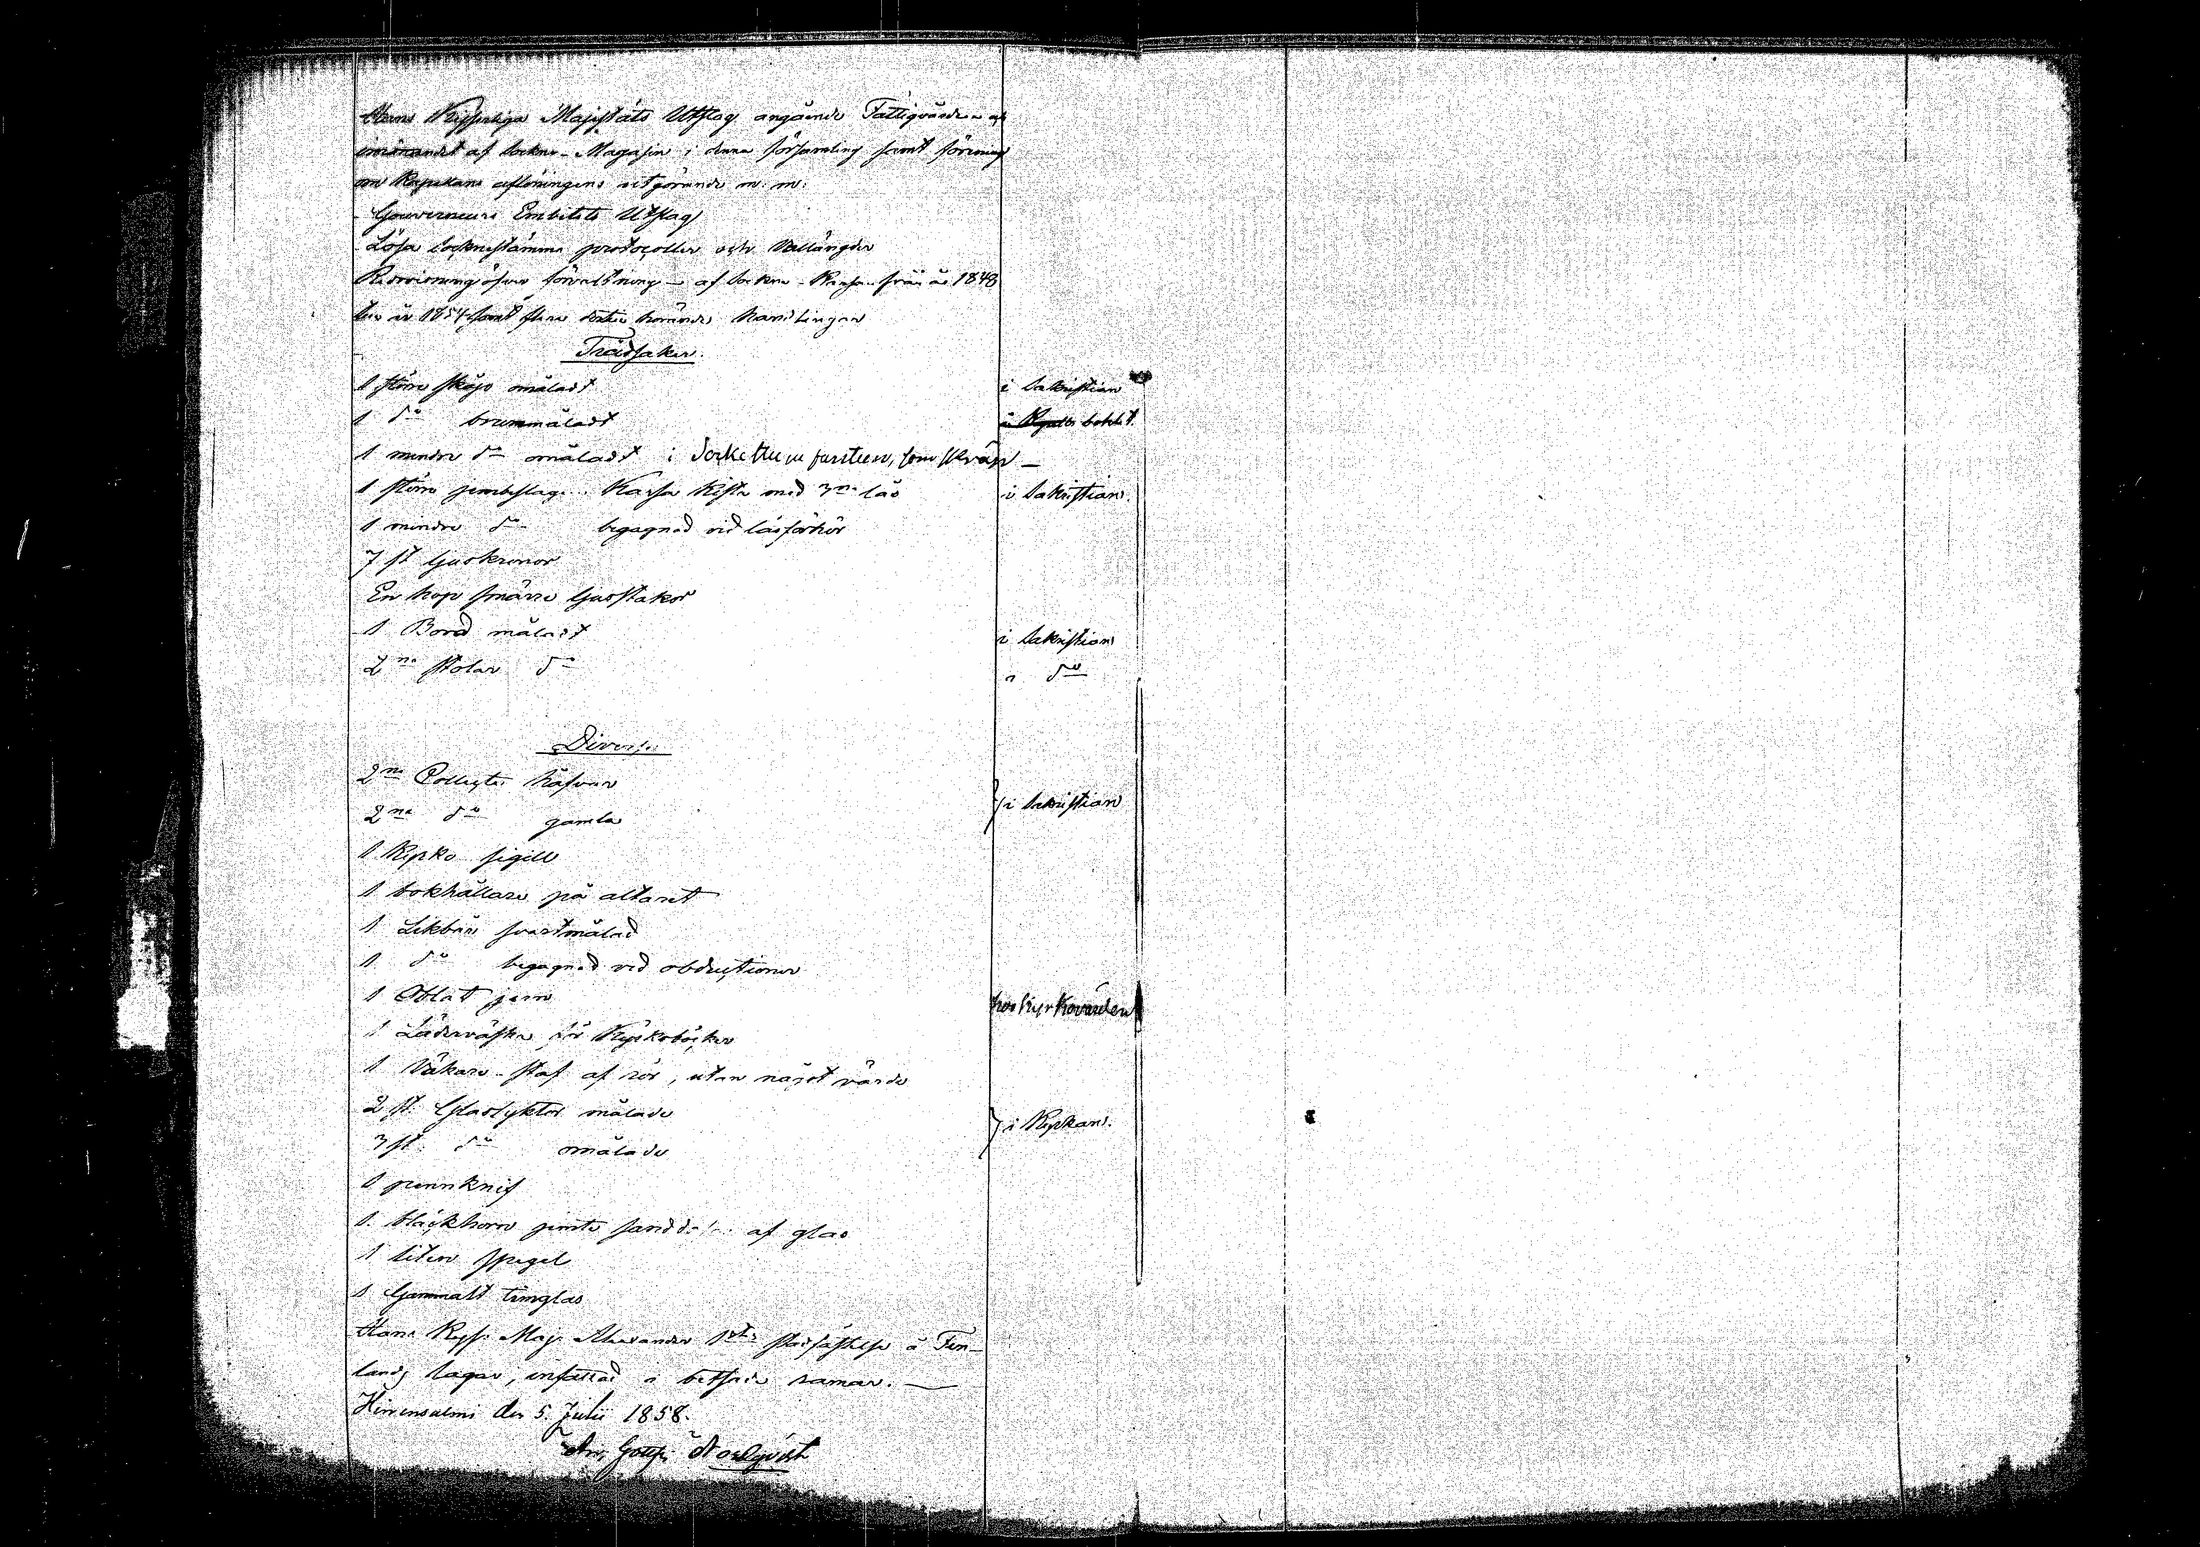 Hans Kejserliga Majestäts Utslag angående Fattigvården och
inrättandet af Sockne-Magasin i denna församling samt förening
om Kapellans aflöningens utgörande m. m.
Gouverneurs Embetets Utslag
Lösa Socknestämmo protocoller och Vallängder
Redovisning öfver förvaltning af Sockne-Kassan från år 1848
till år 1854 samt flera dertill hörande handlingar
Trädsaker.
1 större skåp omåladt i Sakristian
1 do brunmåladt
1 mindre do omåladt i
1 större jernbeslagen Kassa Kista med 3ne lås i Sakristian.
1 mindre do begagnad vid läsförhör
7 st ljuskronor
En hop smärre ljusstakar
1 Bord måladt i Sakristian
2ne stolar do i do
Diverse
2ne Collecte håfvar } i Sakristian
2ne do gamla
1 Kyrko sigill
1 bokhållare på altaret
1 Likbår svartmålad
1 do begagnad vid obductioner
1 Oblat jern hos Kyrkovärden
1 Läderväska för Kyrkoböcker
1 Väkare-staf af rör, utan något värde
2 st. Glaslyktor målade } i Kyrkan.
3 st. do omålade
1 pennknif
1 bläckhorn jemte sanddosa af glas
1 liten spegel
1 Gammalt timglas
Hans Kejs. Maj. Alexander 1stes stadfästelse å Fin-
lands lagar, infattad i betsade ramar.
Hirvensalmi den 5. Julii 1858.
Nordqvist